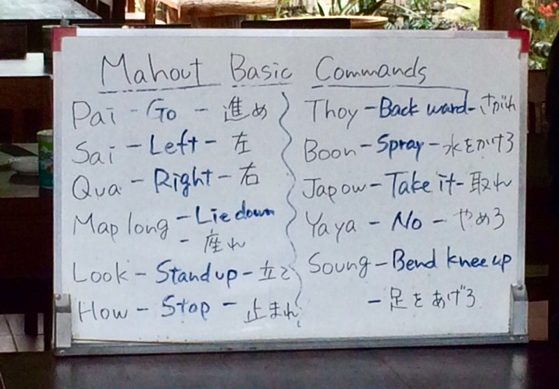 Mahout Basic Commands
Pai - Go - 進め
Sai - Left - 左
Qua - Right - 右
Maplong - Lie down
- 座れ
Look - Stand up - 立て
How - Stop - 止まれ
Thoy - Back ward - さがれ
Boon - Spray - 水をかけろ
Japow - Take it - 取れ
Yaya - No - やめろ
Soung - Bend knee up
- 足をあげろ